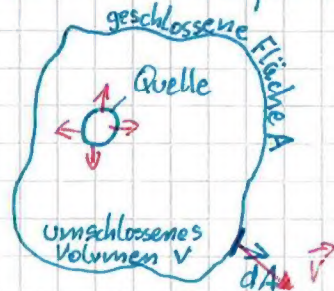 geschlossene Fläche A
Quelle
umschlossenes
Volumen V
dA
v